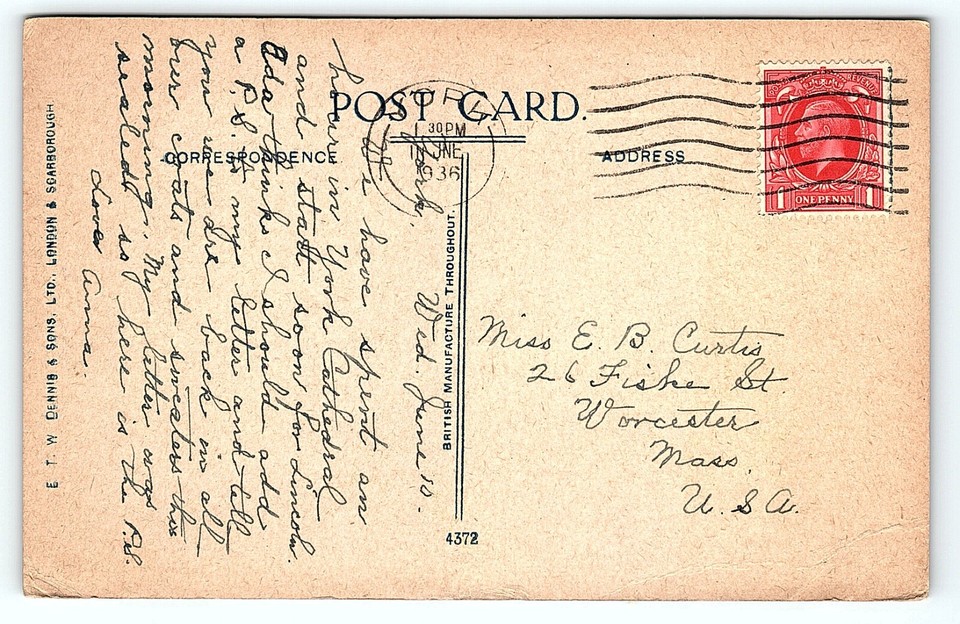 POST CARD.
CORRESPONDENCE
ADDRESS
YORK
30 PM
JUNE
1936
POSTAGE REVENUE
1 ONE PENNY 1
York, Wed. June 10.
We have spent an
hour in York Cathedral
and start soon for Lincoln.
Ada thinks I should add
a P.S. to my letter and tell
you we are back in all
our coats and sweaters this
morning. My letter was
sealed so here is the P.S.
Love Anna.
Miss E. B. Curtis
26 Fiske St.
Worcester
Mass.
U.S.A.
BRITISH MANUFACTURE THROUGHOUT.
4372
E. T. W. DENNIS & SONS, LTD., LONDON & SCARBOROUGH